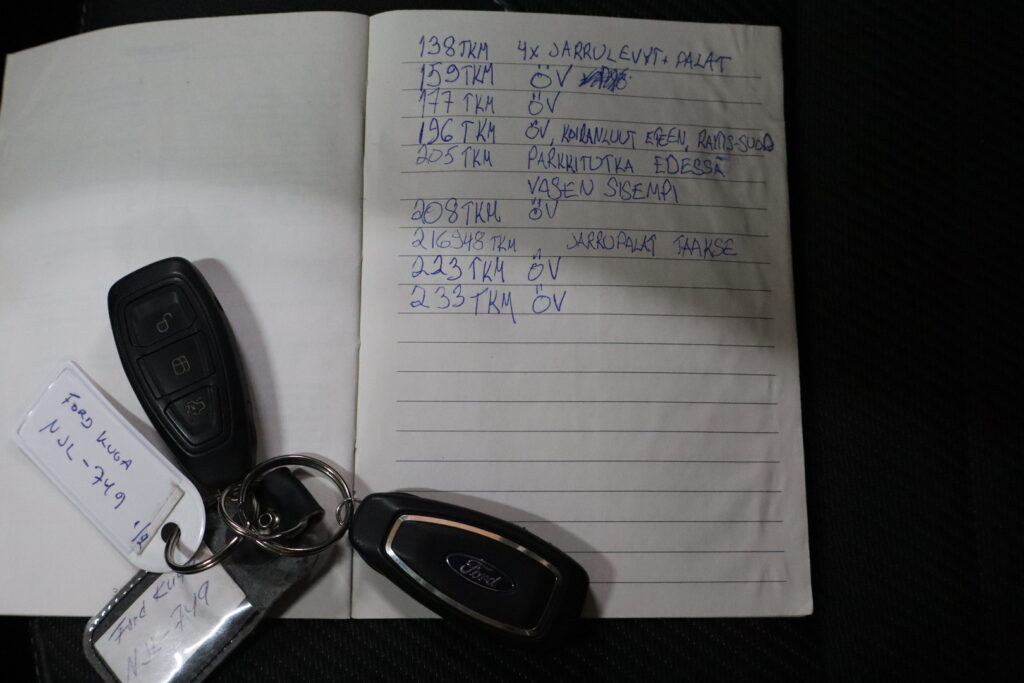 138TKM 4X JARRULEVYT+ PALAT
159TKM ÖV
177 TKM ÖV
196 TKM ÖV, KOIRANLUUT ETEEN,
205 TKM PARKKITUTKA EDESSÄ
VASEN SISEMPI
208TKM ÖV
216948TKM JARRUPALAT TAAKSE
223TKM ÖV
233TKM ÖV
FORD KUGA
NJL-749
Ford
Ford KUG
NJL-749